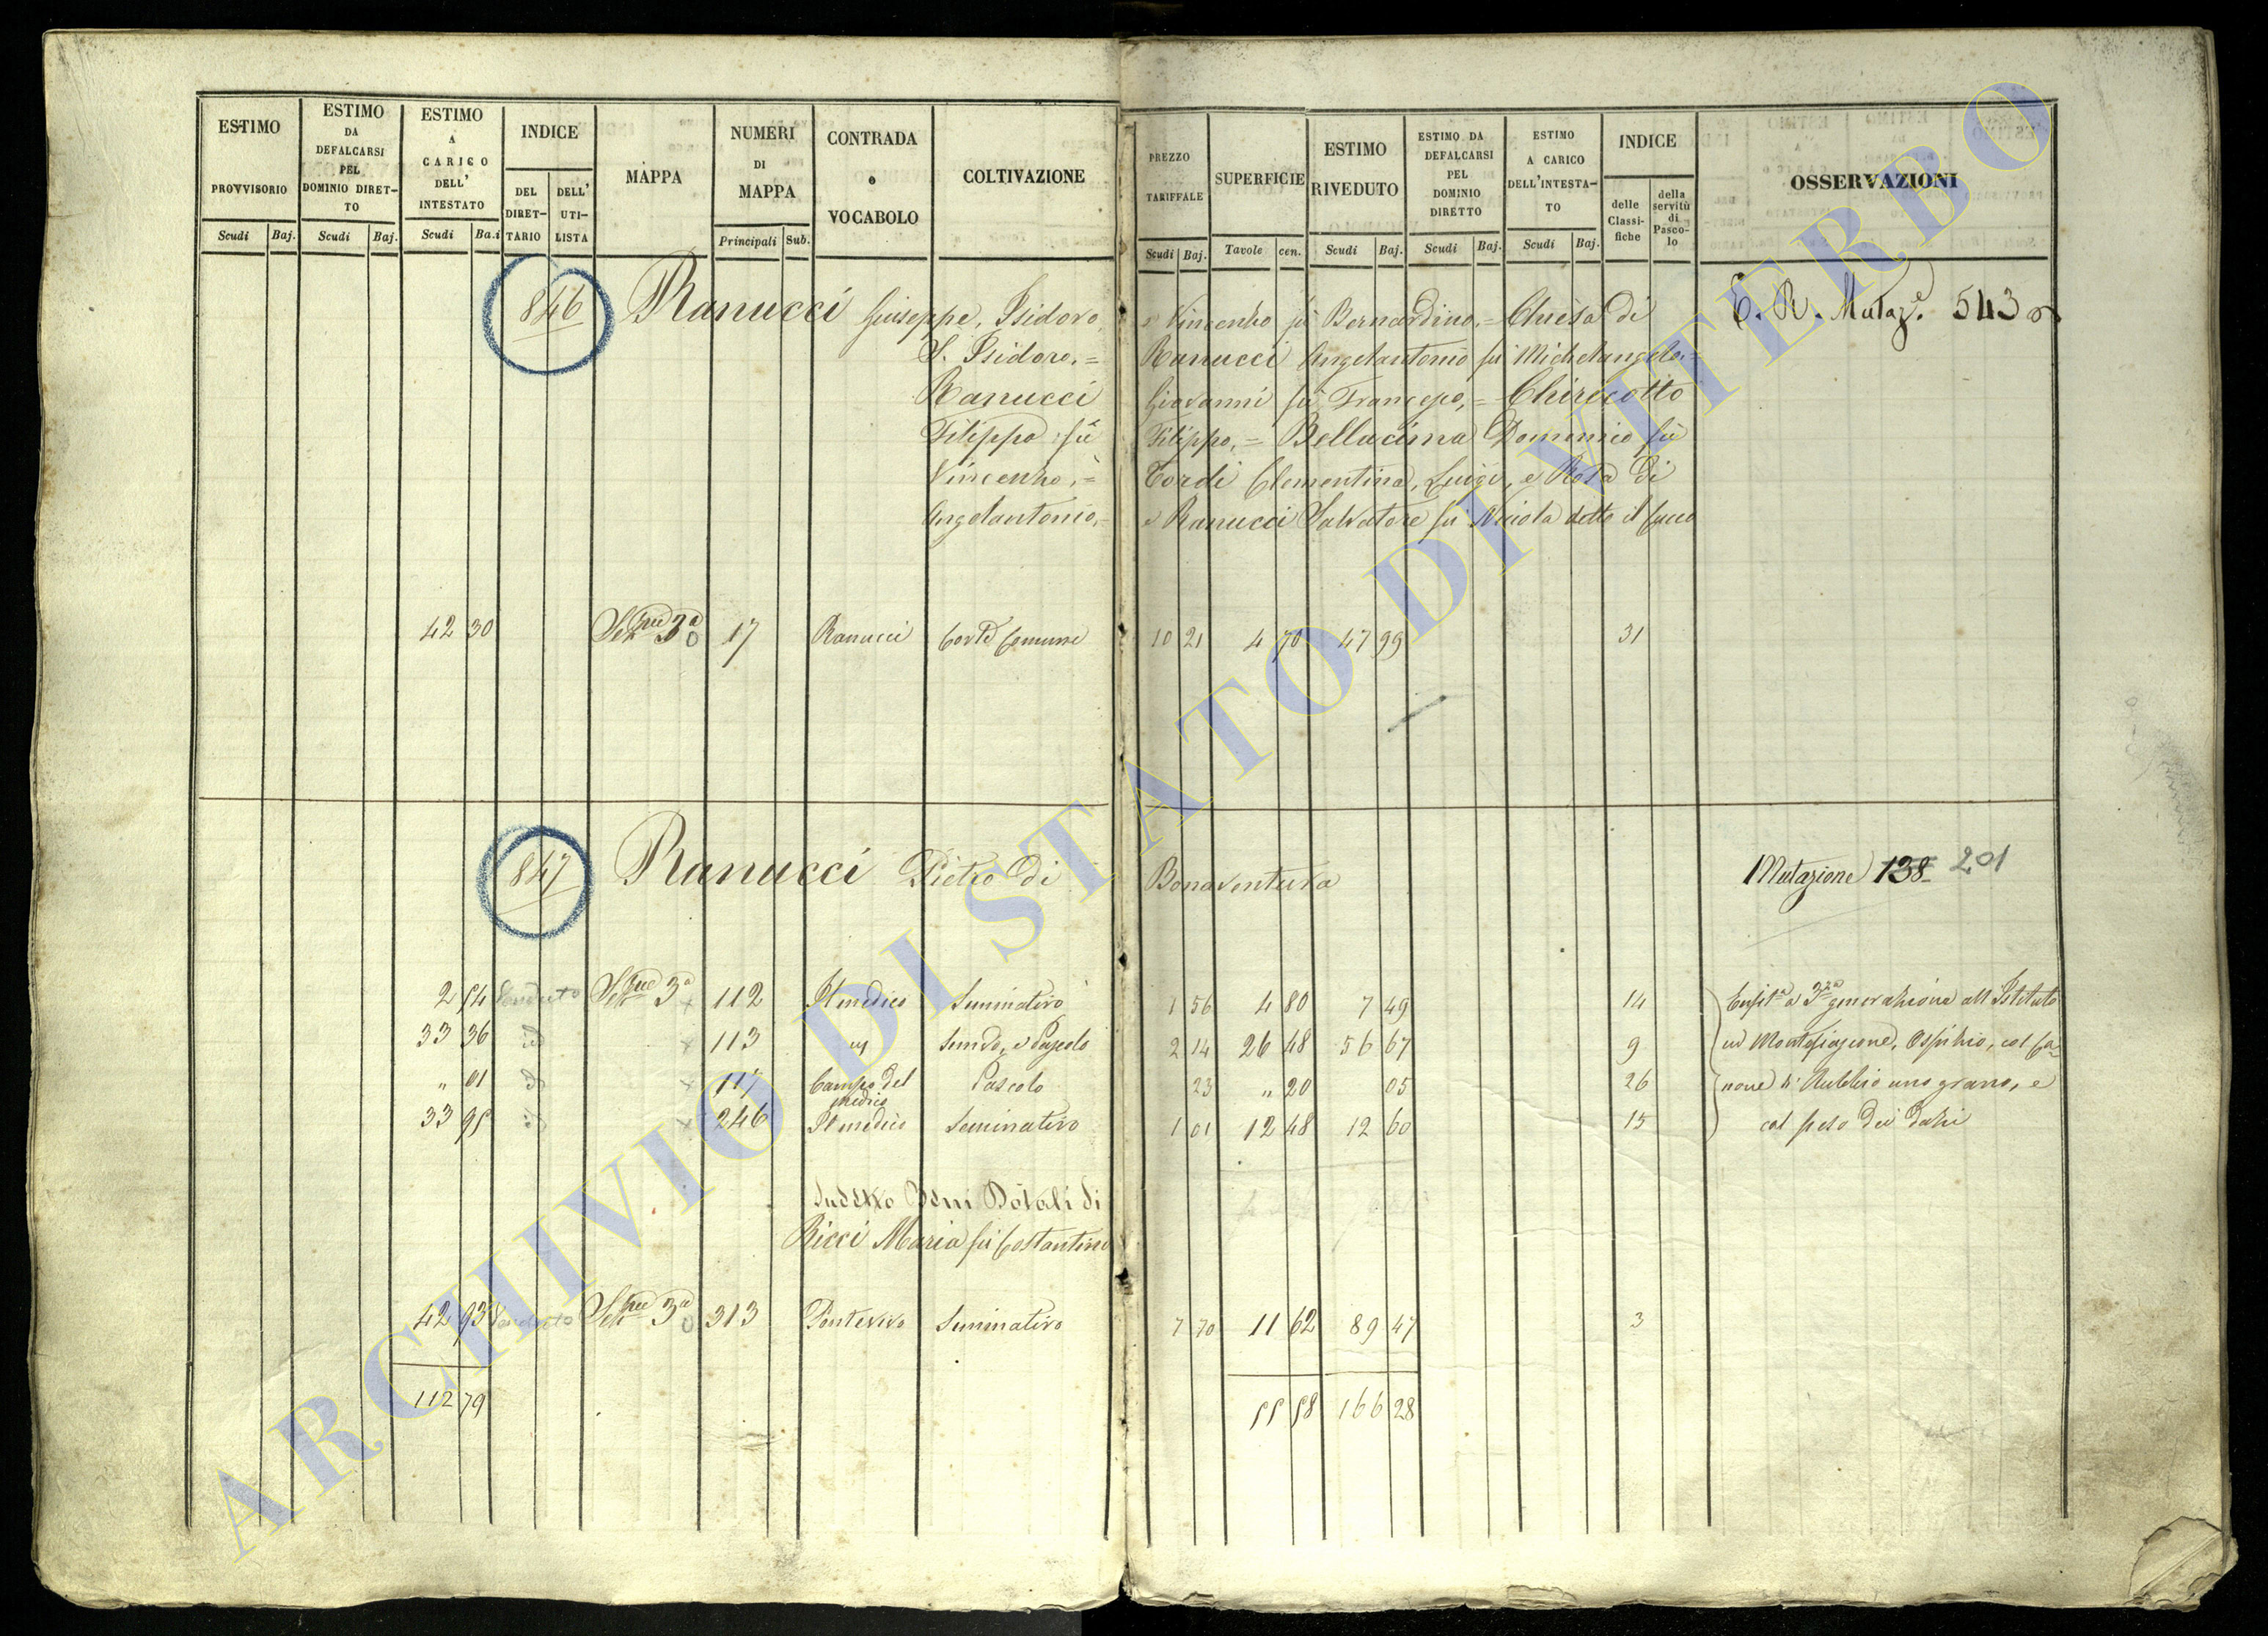 ESTIMO PROVVISORIO Scudi Baj.
ESTIMO DA DEFALCARSI PEL DOMINIO DIRET-TO Scudi Baj.
ESTIMO A CARICO DELL' INTESTATO Scudi Ba.i
INDICE DEL DIRET-TARIO DELL' UTI-LISTA
MAPPA
NUMERI DI MAPPA Principali Sub.
CONTRADA e VOCABOLO
COLTIVAZIONE
PREZZO TARIFFALE Scudi Baj.
SUPERFICIE Tavole cen.
ESTIMO RIVEDUTO Scudi Baj.
ESTIMO DA DEFALCARSI PEL DOMINIO DIRETTO Scudi Baj.
ESTIMO A CARICO DELL'INTESTA-TO Scudi Baj.
INDICE delle Classi-fiche della servitù di Pasco-lo
OSSERVAZIONI
846 Ranucci Giuseppe, Isidoro, e Vincenzo fù Bernardino, = Chiesa di
S. Isidoro, = Ranucci Angelantonio fù Michelangelo =
Ranucci Giovanni fù Francesco, = Chiricotto
Filippo fù Filippo, = Bellacima Domenico fù
Vincenzo, = Tordi Clementina, Luigi, e Rosa di
Angelantonio, = e Ranucci Salvatore fu Nicola detto il
C. R. Mutaz.e 543
42 30 Sez.ne 3a 0 17 Ranucci Corte Comune 10 21 4 70 47 99 31
847 Ranucci Pietro di Bonaventura
Mutazione 138 201
2 54 Venduto Sez.ne 3a x 112 Il medico Seminativo 1 56 4 80 7 49 14
33 36 id x 113 Sem.do, e Pascolo 2 14 26 48 56 67 9
" 01 id x 117 Campo del medico Pascolo 23 " 20 05 26
33 95 id x 246 Il medico Seminativo 1 01 12 48 12 60 15
Enfit.a a 3za generazione all Istituto
in Montefiascone, Ospizio, col Ca-
none di Rubbio uno grano, e
col peso dei Dazi
Sudetto Beni Dotali di
Ricci Maria fù Costantino
42 93 Venduto Sez.ne 3a 0 313 Pontevivo Seminativo 7 70 11 62 89 47 3
112 79 55 58 166 28
ARCHIVIO DI STATO DI VITERBO